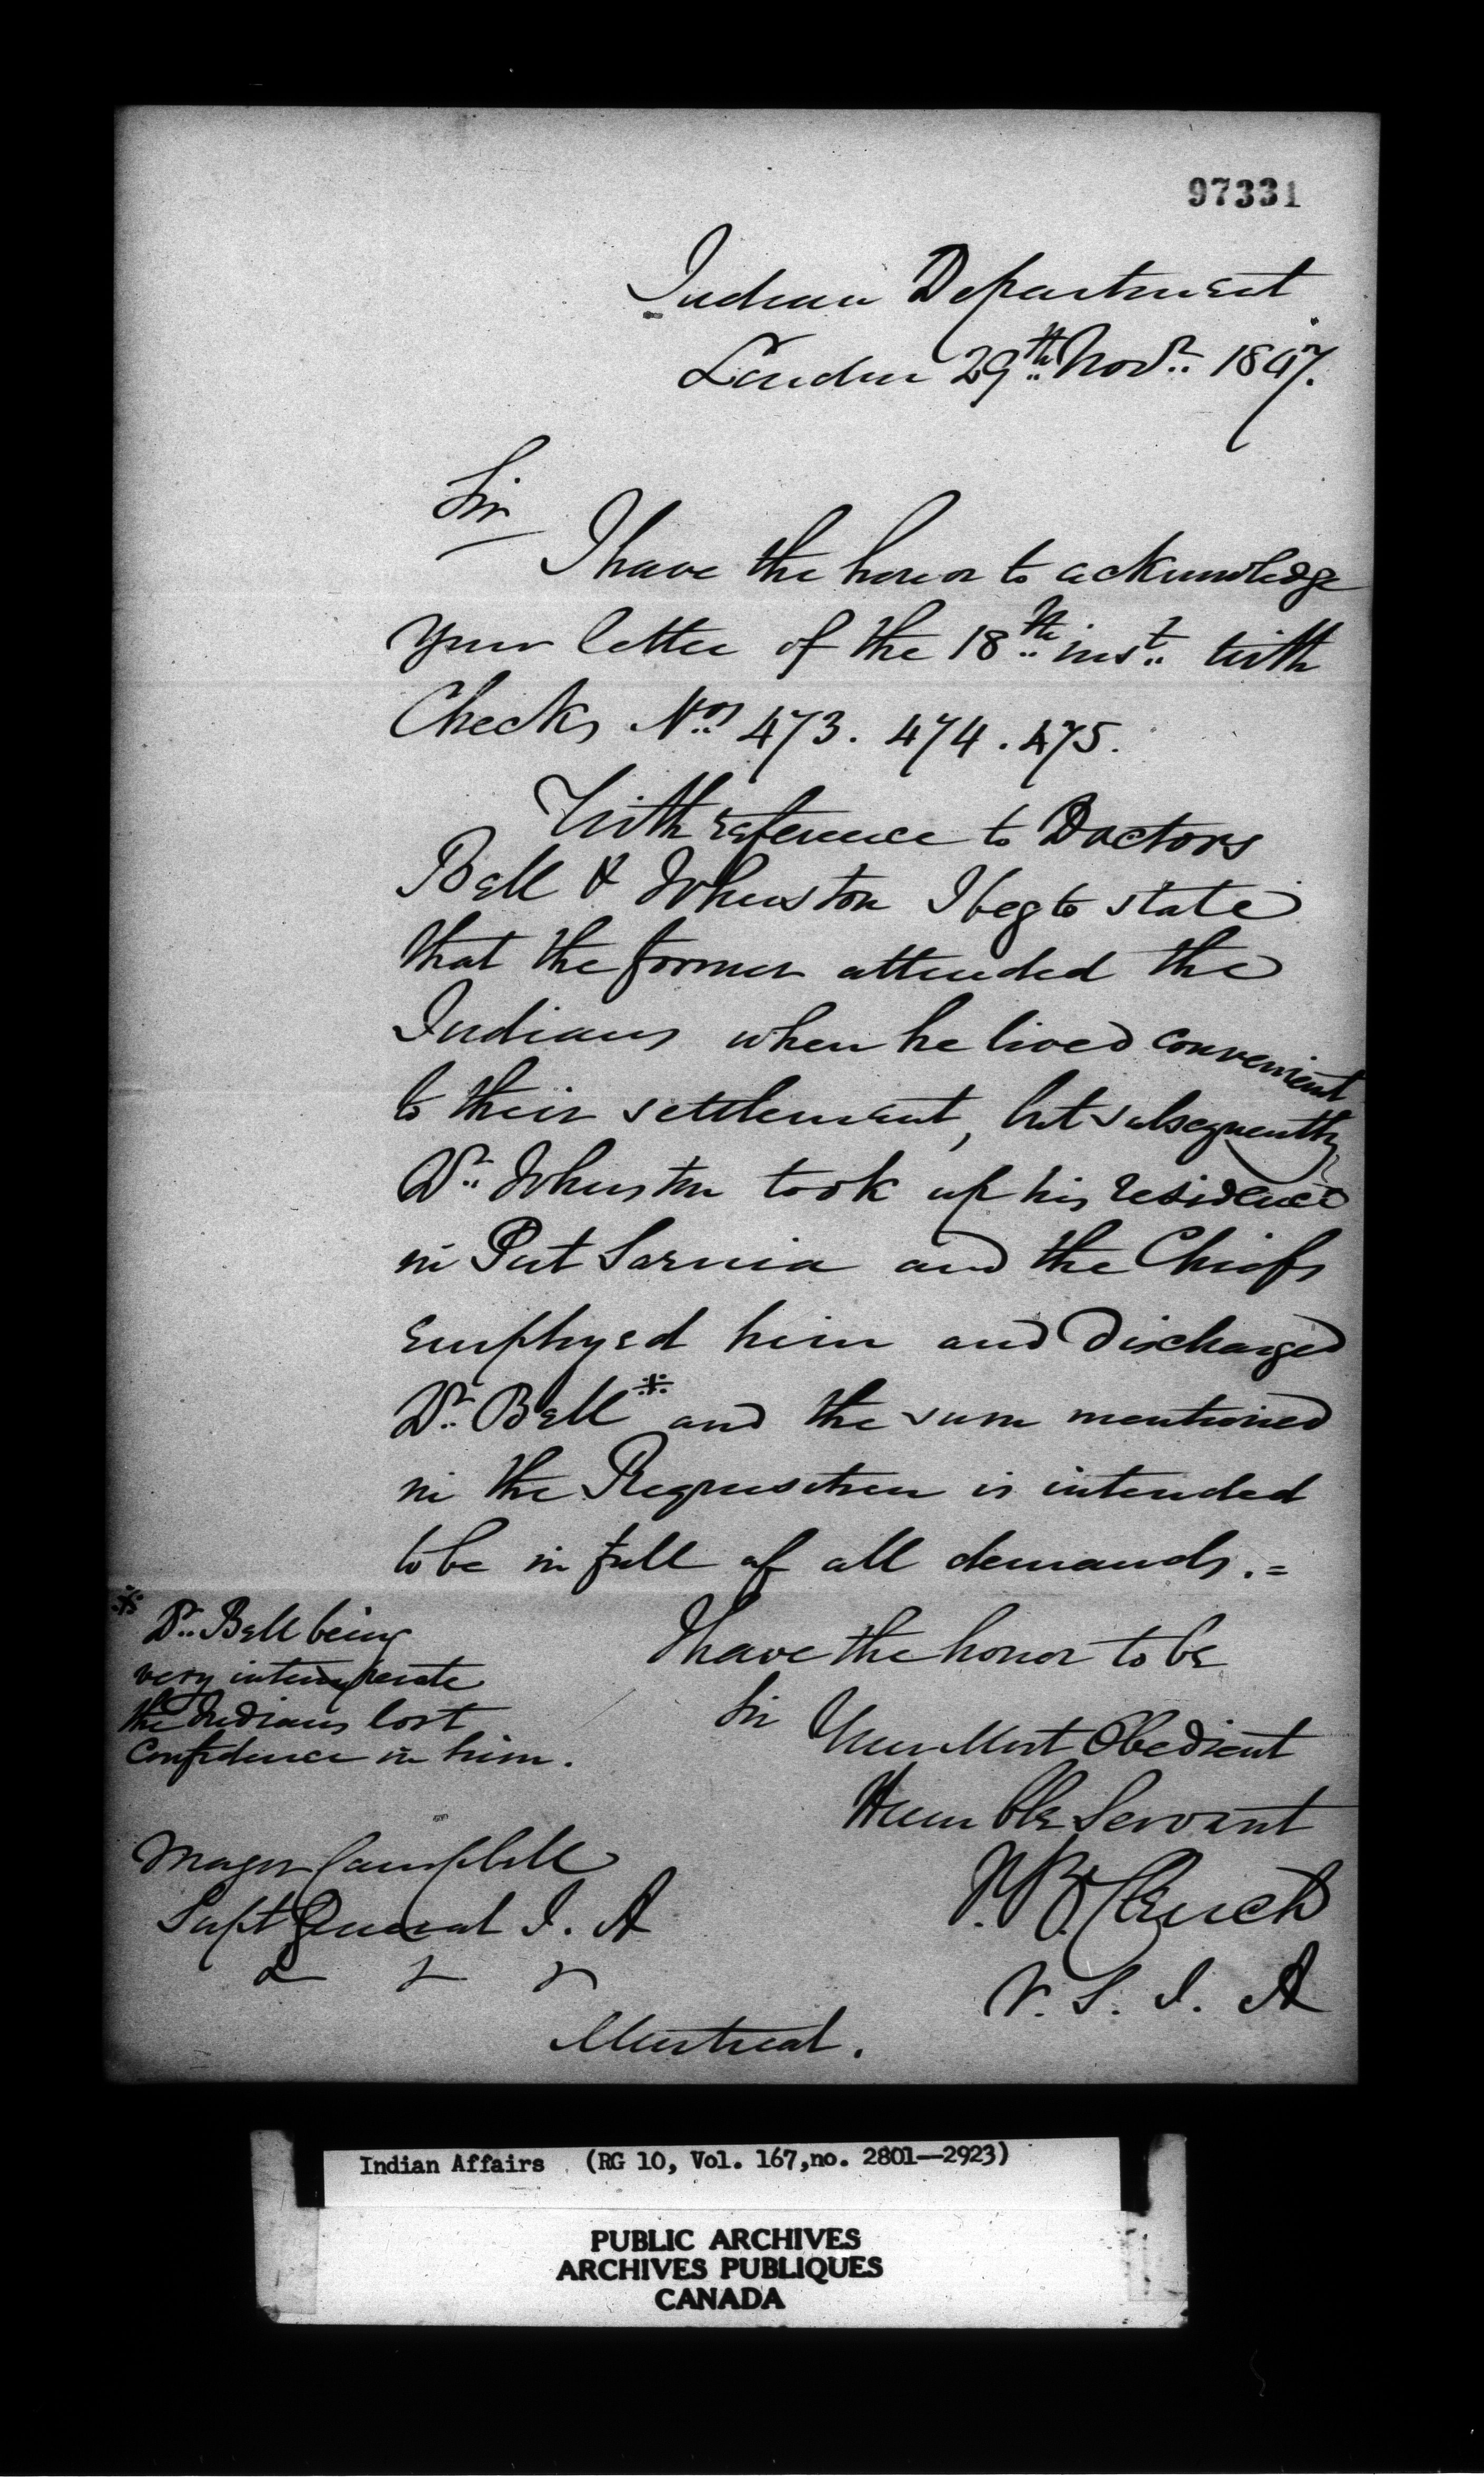 97331
Indian Department
London 29th Novr 1847.
Sir
I have the honor to acknowledge
your letter of the 18th inst. with
Checks Nos 473. 474. 475.
With reference to Doctors
Bell & Johnston I beg to state
that the former attended the
Indians when he lived convenient
to their settlement, but subsequently
Dr. Johnston took up his residence
in Port Sarnia and the Chiefs
employed him and discharged
Dr. Bell※ and the sum mentioned
in the Requisition is intended
to be in full of all demands.=
※ Dr. Bell being
very intemperate
the Indians lost
confidence in him.
I have the honor to be
Sir
Your Most Obedient
Humble Servant
J. B. Clench
V. S. I. A
Major Campbell
Supt General I. A
& & &
Montreal.
Indian Affairs (RG 10, Vol. 167, no. 2801—2923)
PUBLIC ARCHIVES
ARCHIVES PUBLIQUES
CANADA